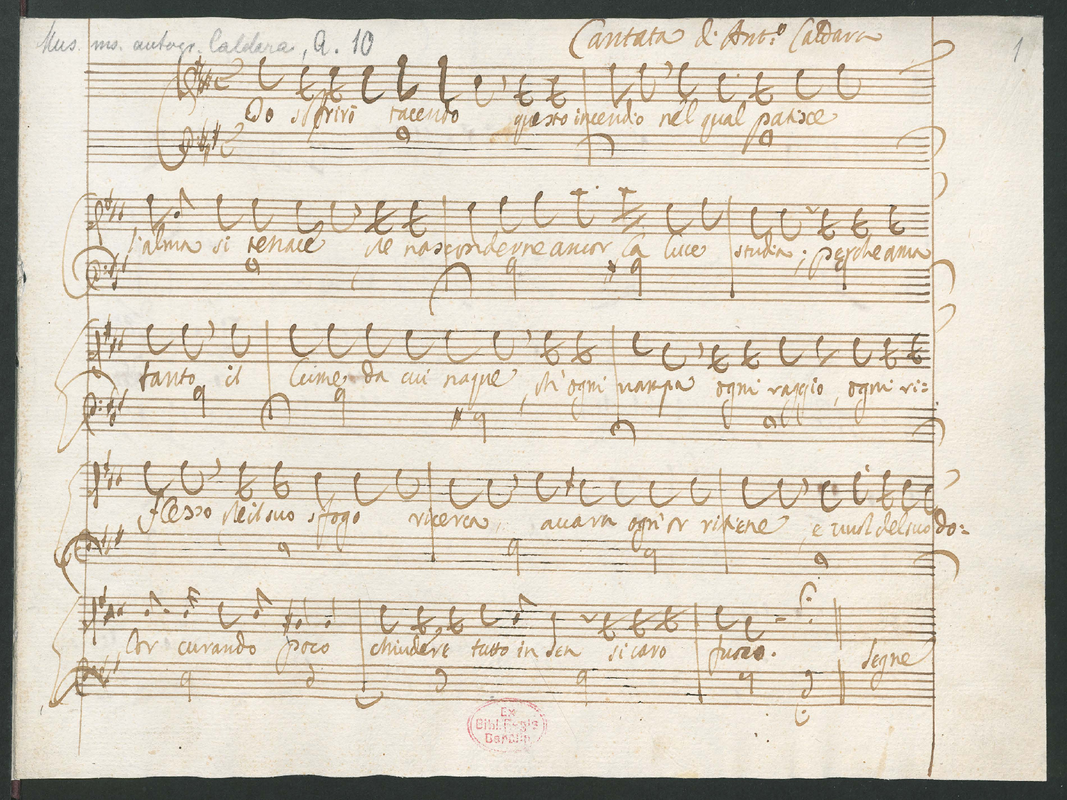 Mus. ms. autogr. Caldara, A. 10
Cantata di Ant:o Caldara
1
Io soffrirò tacendo questo incendo nel qual patisce
l'alma si tenace che nasconderne ancor la luce studia; perche ama
tanto il lume da cui naque, ch'ogni vampa ogni raggio, ogni ri=
flesso nel suo sfogo ricerca, avara ogn'or ritiene, e vuol del suo do=
lor curando poco chiudere tutto in sen si caro fuoco.
Segne
Ex
Bibl. Regia
Berolin.